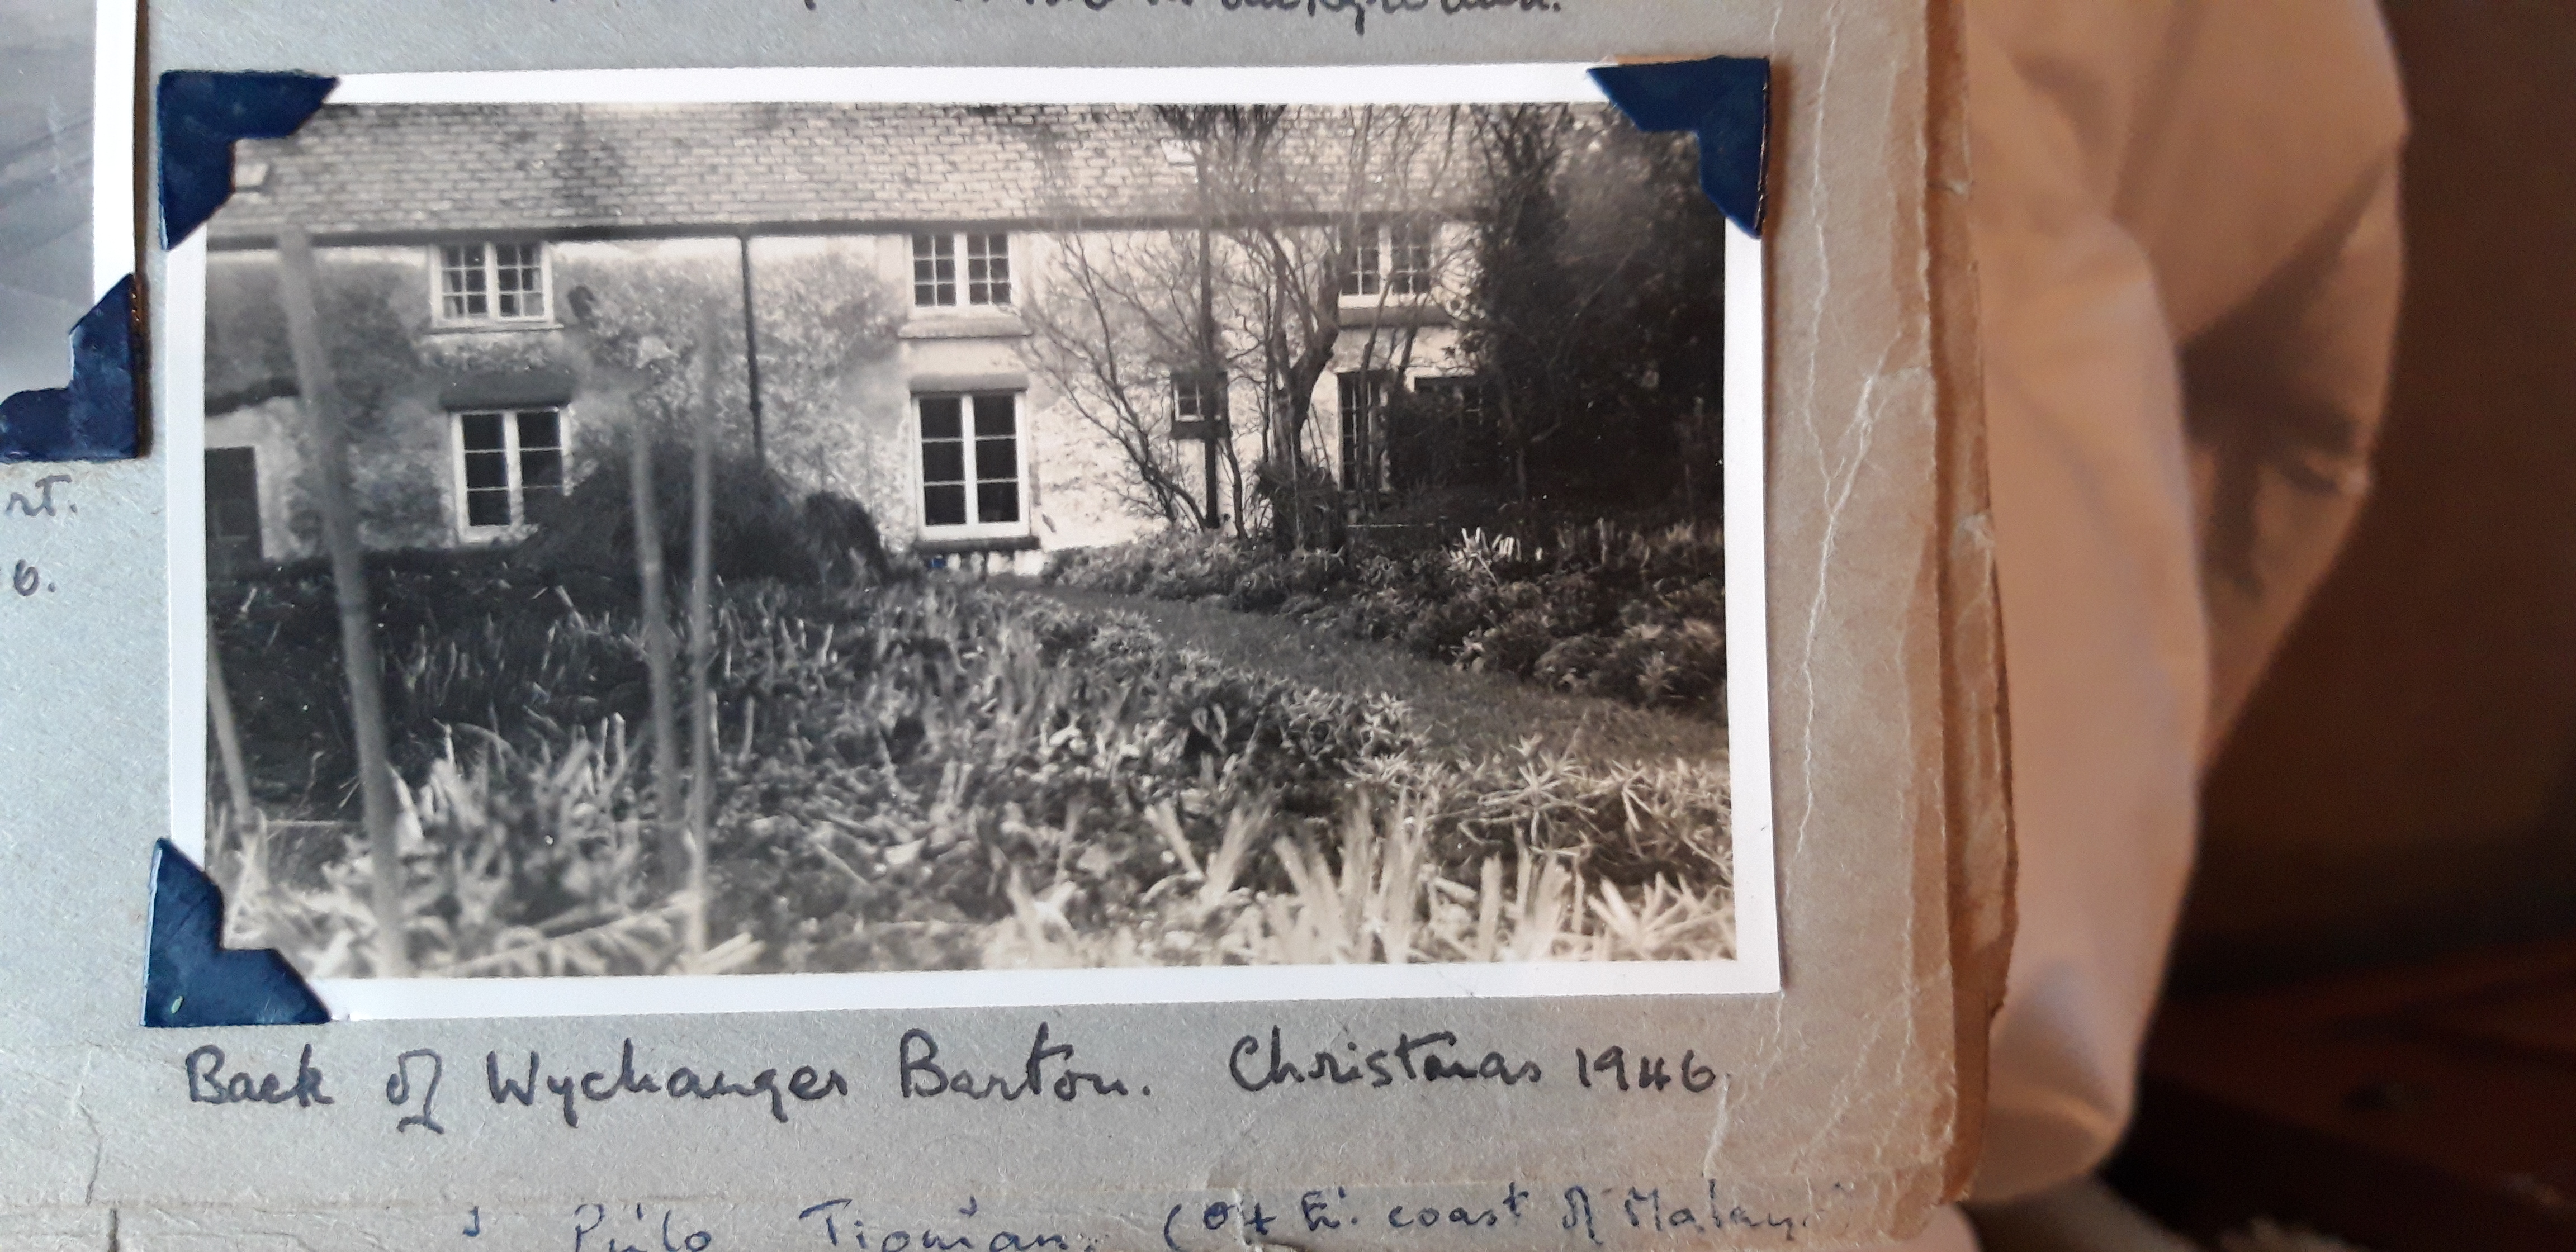 rt.
6.
Back of Wychanger Barton. Christmas 1946.
Pulo Tioman. (Off E. coast of Malay